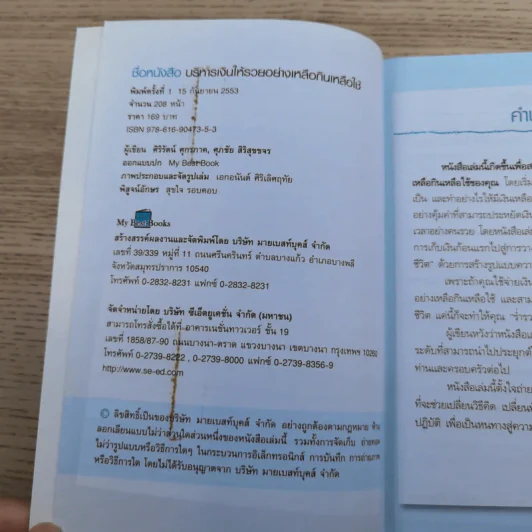 ชื่อหนังสือ บริหารเงินให้รวยอย่างเหลือกินเหลือใช้
พิมพ์ครั้งที่ 1 15 กันยายน 2553
จำนวน 208 หน้า
ราคา 169 บาท
ISBN 978-616-90473-5-3
ผู้เขียน ศิริรัตน์ ศุกรภาค, ศุภชัย สิริสุขขจร
ออกแบบปก My Best Book
ภาพประกอบและจัดรูปเล่ม เอกอนันต์ ศิริเลิศฤทัย
พิสูจน์อักษร สุขใจ รอบคอบ
My Best Books
สร้างสรรค์ผลงานและจัดพิมพ์โดย บริษัท มายเบสท์บุคส์ จำกัด
เลขที่ 39/339 หมู่ที่ 11 ถนนศรีนครินทร์ ตำบลบางแก้ว อำเภอบางพลี
จังหวัดสมุทรปราการ 10540
โทรศัพท์ 0-2832-8231 แฟกซ์ 0-2832-8231
จัดจำหน่ายโดย บริษัท ซีเอ็ดยูเคชั่น จำกัด (มหาชน)
สามารถโทรสั่งซื้อได้ที่ อาคารเนชั่นทาวเวอร์ ชั้น 19
เลขที่ 1858/87-90 ถนนบางนา-ตราด แขวงบางนา เขตบางนา กรุงเทพฯ 10260
โทรศัพท์ 0-2739-8222 , 0-2739-8000 แฟกซ์ 0-2739-8356-9
http://www.se-ed.com
© ลิขสิทธิ์เป็นของบริษัท มายเบสท์บุคส์ จำกัด อย่างถูกต้องตามกฎหมาย ห้าม
ลอกเลียนแบบไม่ว่าส่วนใดส่วนหนึ่งของหนังสือเล่มนี้ รวมทั้งการจัดเก็บ ถ่ายทอด
ไม่ว่ารูปแบบหรือวิธีการใดๆ ในกระบวนการอิเล็กทรอนิกส์ การบันทึก การถ่ายภาพ
หรือวิธีการใด โดยไม่ได้รับอนุญาตจาก บริษัท มายเบสท์บุคส์ จำกัด
หนังสือเล่มนี้เกิดขึ้นเพื่อ
เหลือกินเหลือใช้ของคุณ โดยเริ่ม
เป็น และทำอย่างไรให้มีเงินเหลือ
อย่างคุ้มค่าที่สามารถประหยัดเงิน
เวลาอย่างคนรวย โดยหนังสือเล่ม
การเก็บเงินก้อนแรกไปสู่การวาง
ชีวิต" ด้วยการสร้างรูปแบบความ
เพราะถ้าคุณใช้จ่ายเงิน
อย่างเหลือกินเหลือใช้ และสาม
ชีวิต แค่นี้ก็จะทำให้คุณ "ร่ำรว
ผู้เขียนหวังว่าหนังสือเล
ระดับที่สามารถนำไปประยุกต์
ท่านและครอบครัวต่อไป
หนังสือเล่มนี้ตั้งใจถ่าย
ที่จะช่วยเปลี่ยนวิธีคิด เปลี่ยน
ปฏิบัติ เพื่อเป็นหนทางสู่ความ